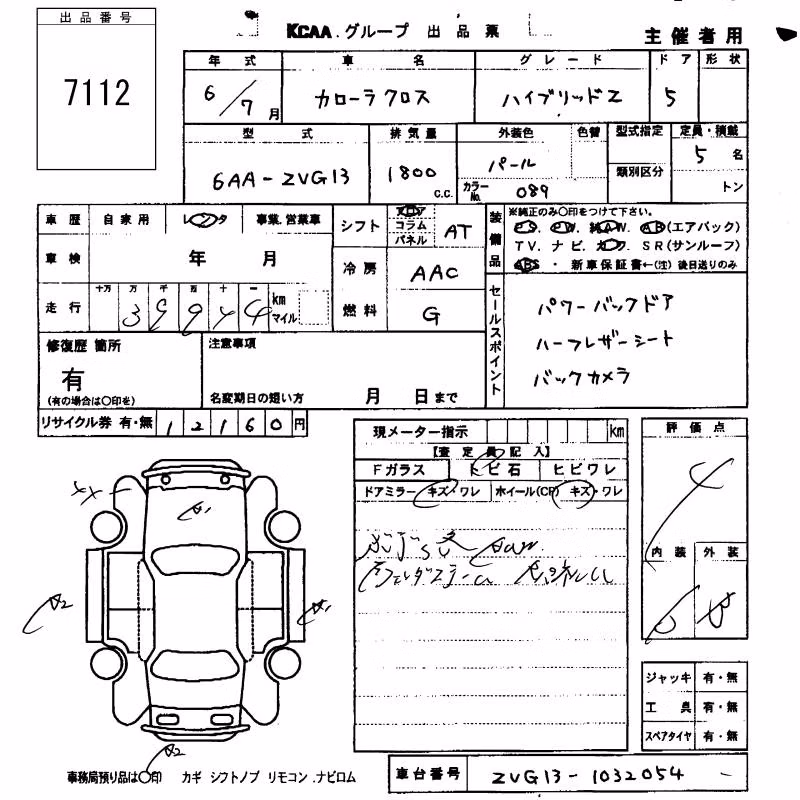 出品番号
7112
KCAA.グループ 出品票
主催者用
年式 車名 グレード ドア 形状
6/7月 カローラクロス ハイブリッドZ 5
型式 排気量 外装色 色替 型式指定 定員・積載
6AA-ZVG13 1800 c.c. パール 類別区分 5名
カラーNo. 089 トン
車歴 自家用 レンタ 事業.営業車
シフト フロア コラム パネル AT
装備品
※純正のみ〇印をつけて下さい。
PS. PW. 純AW. AB(エアバック)
TV. ナビ. カワ. SR(サンルーフ)
ABS ・ 新車保証書←(注) 後日送りのみ
車検 年 月
冷房 AAC
走行 十万 万 千 百 十 一
39944 km マイル
燃料 G
セールスポイント
パワーバックドア
ハーフレザーシート
バックカメラ
修復歴 箇所
有
(有の場合は〇印を)
注意事項
名変期日の短い方 月 日まで
リサイクル券 有・無 12160円
現メーター指示 km
【査定員記入】
Fガラス トビ石 ヒビワレ
ドアミラー キズ・ワレ ホイール(CP) キズ・ワレ
評価点
4
内装 外装
XX
A1
A2
A1
A2
ジャッキ 有・無
工具 有・無
スペアタイヤ 有・無
事務局預り品は〇印 カギ シフトノブ リモコン.ナビロム
車台番号 ZVG13-1032054